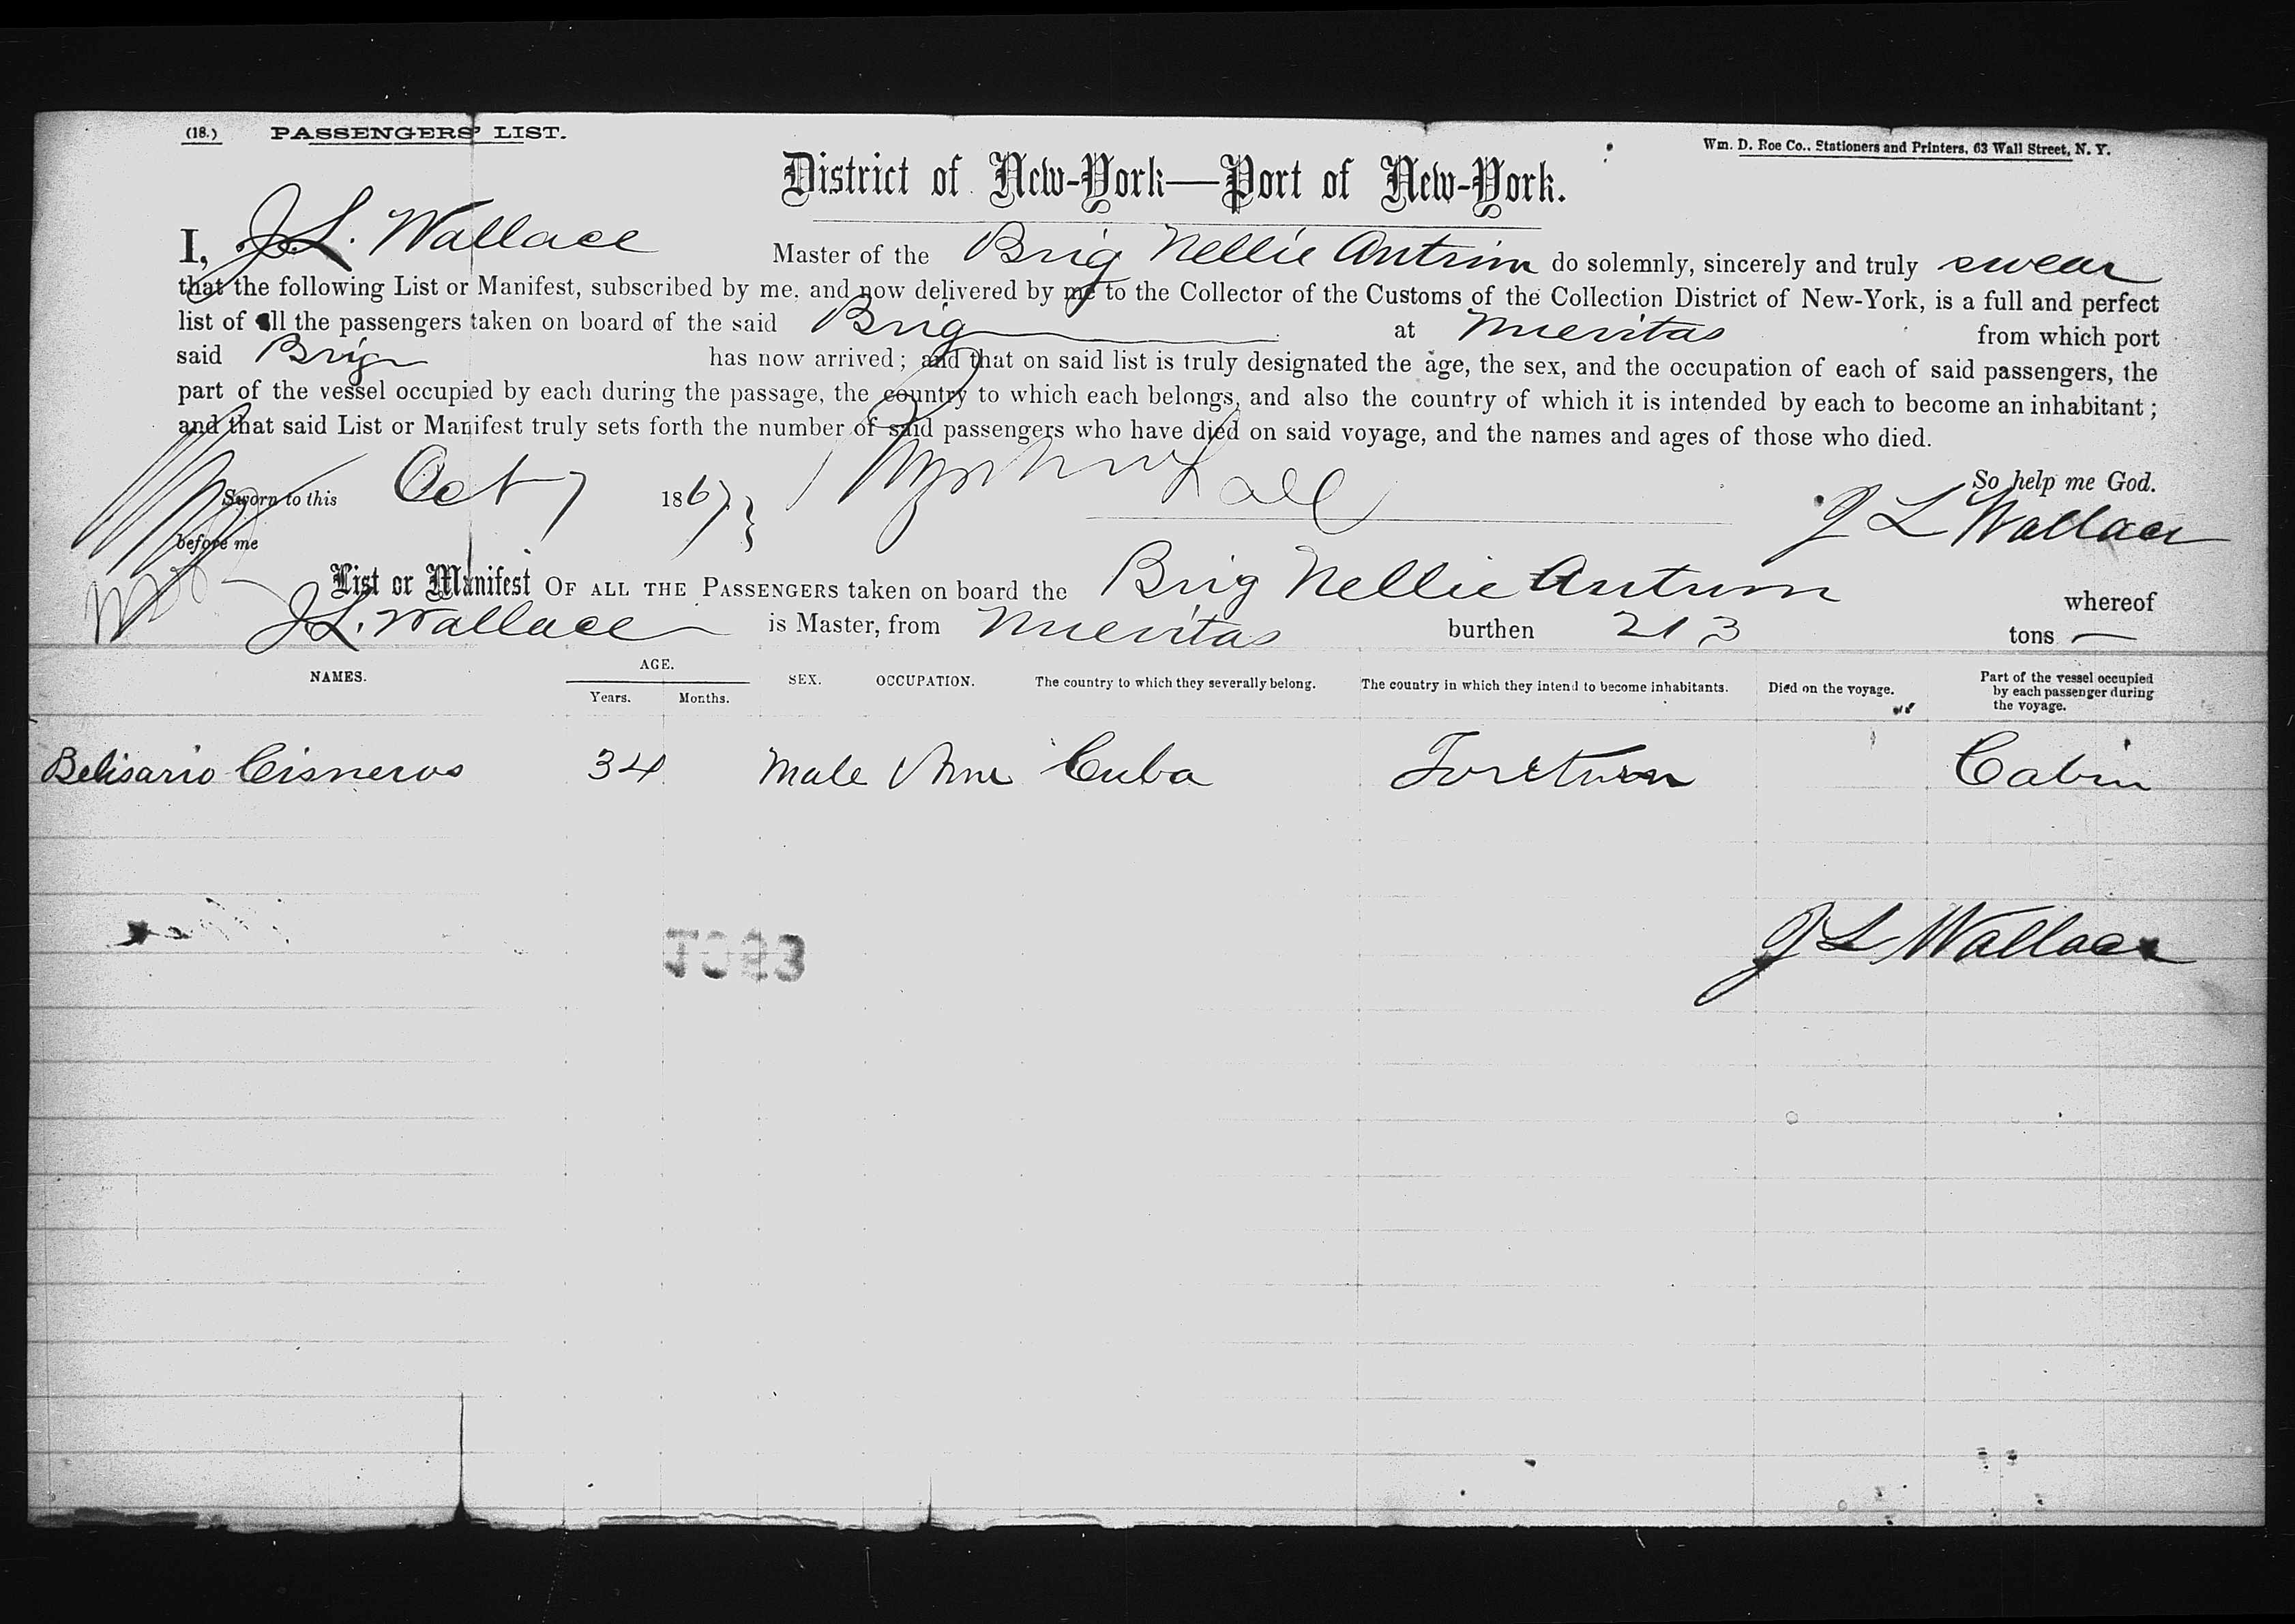 (18.) PASSENGERS' LIST.
Wm. D. Roe Co., Stationers and Printers, 63 Wall Street, N. Y.
District of New-York—Port of New-York.
I, J. L. Wallace Master of the Brig Nellie Antrim do solemnly, sincerely and truly swear
that the following List or Manifest, subscribed by me, and now delivered by me to the Collector of the Customs of the Collection District of New-York, is a full and perfect
list of all the passengers taken on board of the said Brig at Nuevitas from which port
said Brig has now arrived; and that on said list is truly designated the age, the sex, and the occupation of each of said passengers, the
part of the vessel occupied by each during the passage, the country to which each belongs, and also the country of which it is intended by each to become an inhabitant;
and that said List or Manifest truly sets forth the number of said passengers who have died on said voyage, and the names and ages of those who died.
So help me God.
Sworn to this Oct 7 1867 } J L Wallace
before me
List or Manifest OF ALL THE PASSENGERS taken on board the Brig Nellie Antrim whereof
J. L. Wallace is Master, from Nuevitas burthen 213 tons
NAMES. AGE. Years. Months. SEX. OCCUPATION. The country to which they severally belong. The country in which they intend to become inhabitants. Died on the voyage. Part of the vessel occupied by each passenger during the voyage.
Belisario Cisneros 34 Male Cuba To return Cabin
J L Wallace